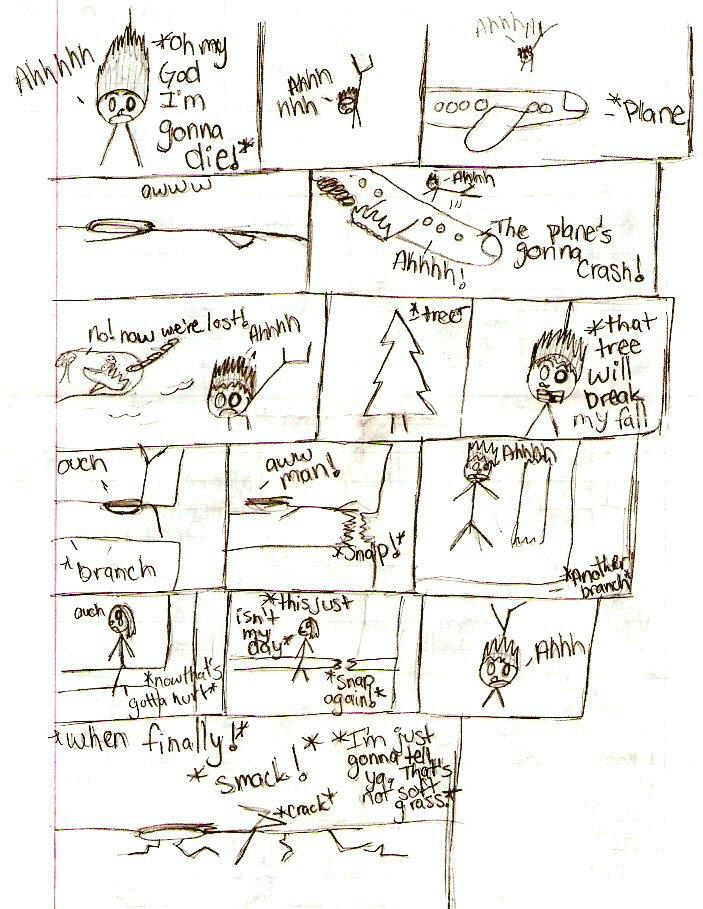 Ahhhhh
*Oh my
God
I'm
gonna
die!*
Ahhh
hhh
Ahhhh
*Plane
awww
Ahhh
Ahhhh!
*The plane's
gonna
crash!
no! now we're lost!
Ahhhh
*tree*
*that
tree
will
break
my fall
ouch
*branch
aww
man!
*Snap!*
Ahhhh
*Another
branch*
ouch
*now that's
gotta hurt*
*this just
isn't
my
day*
*Snap
again!*
Ahhh
*when finally!*
*smack!*
*crack*
*I'm just
gonna tell
ya, That's
not soft
grass*